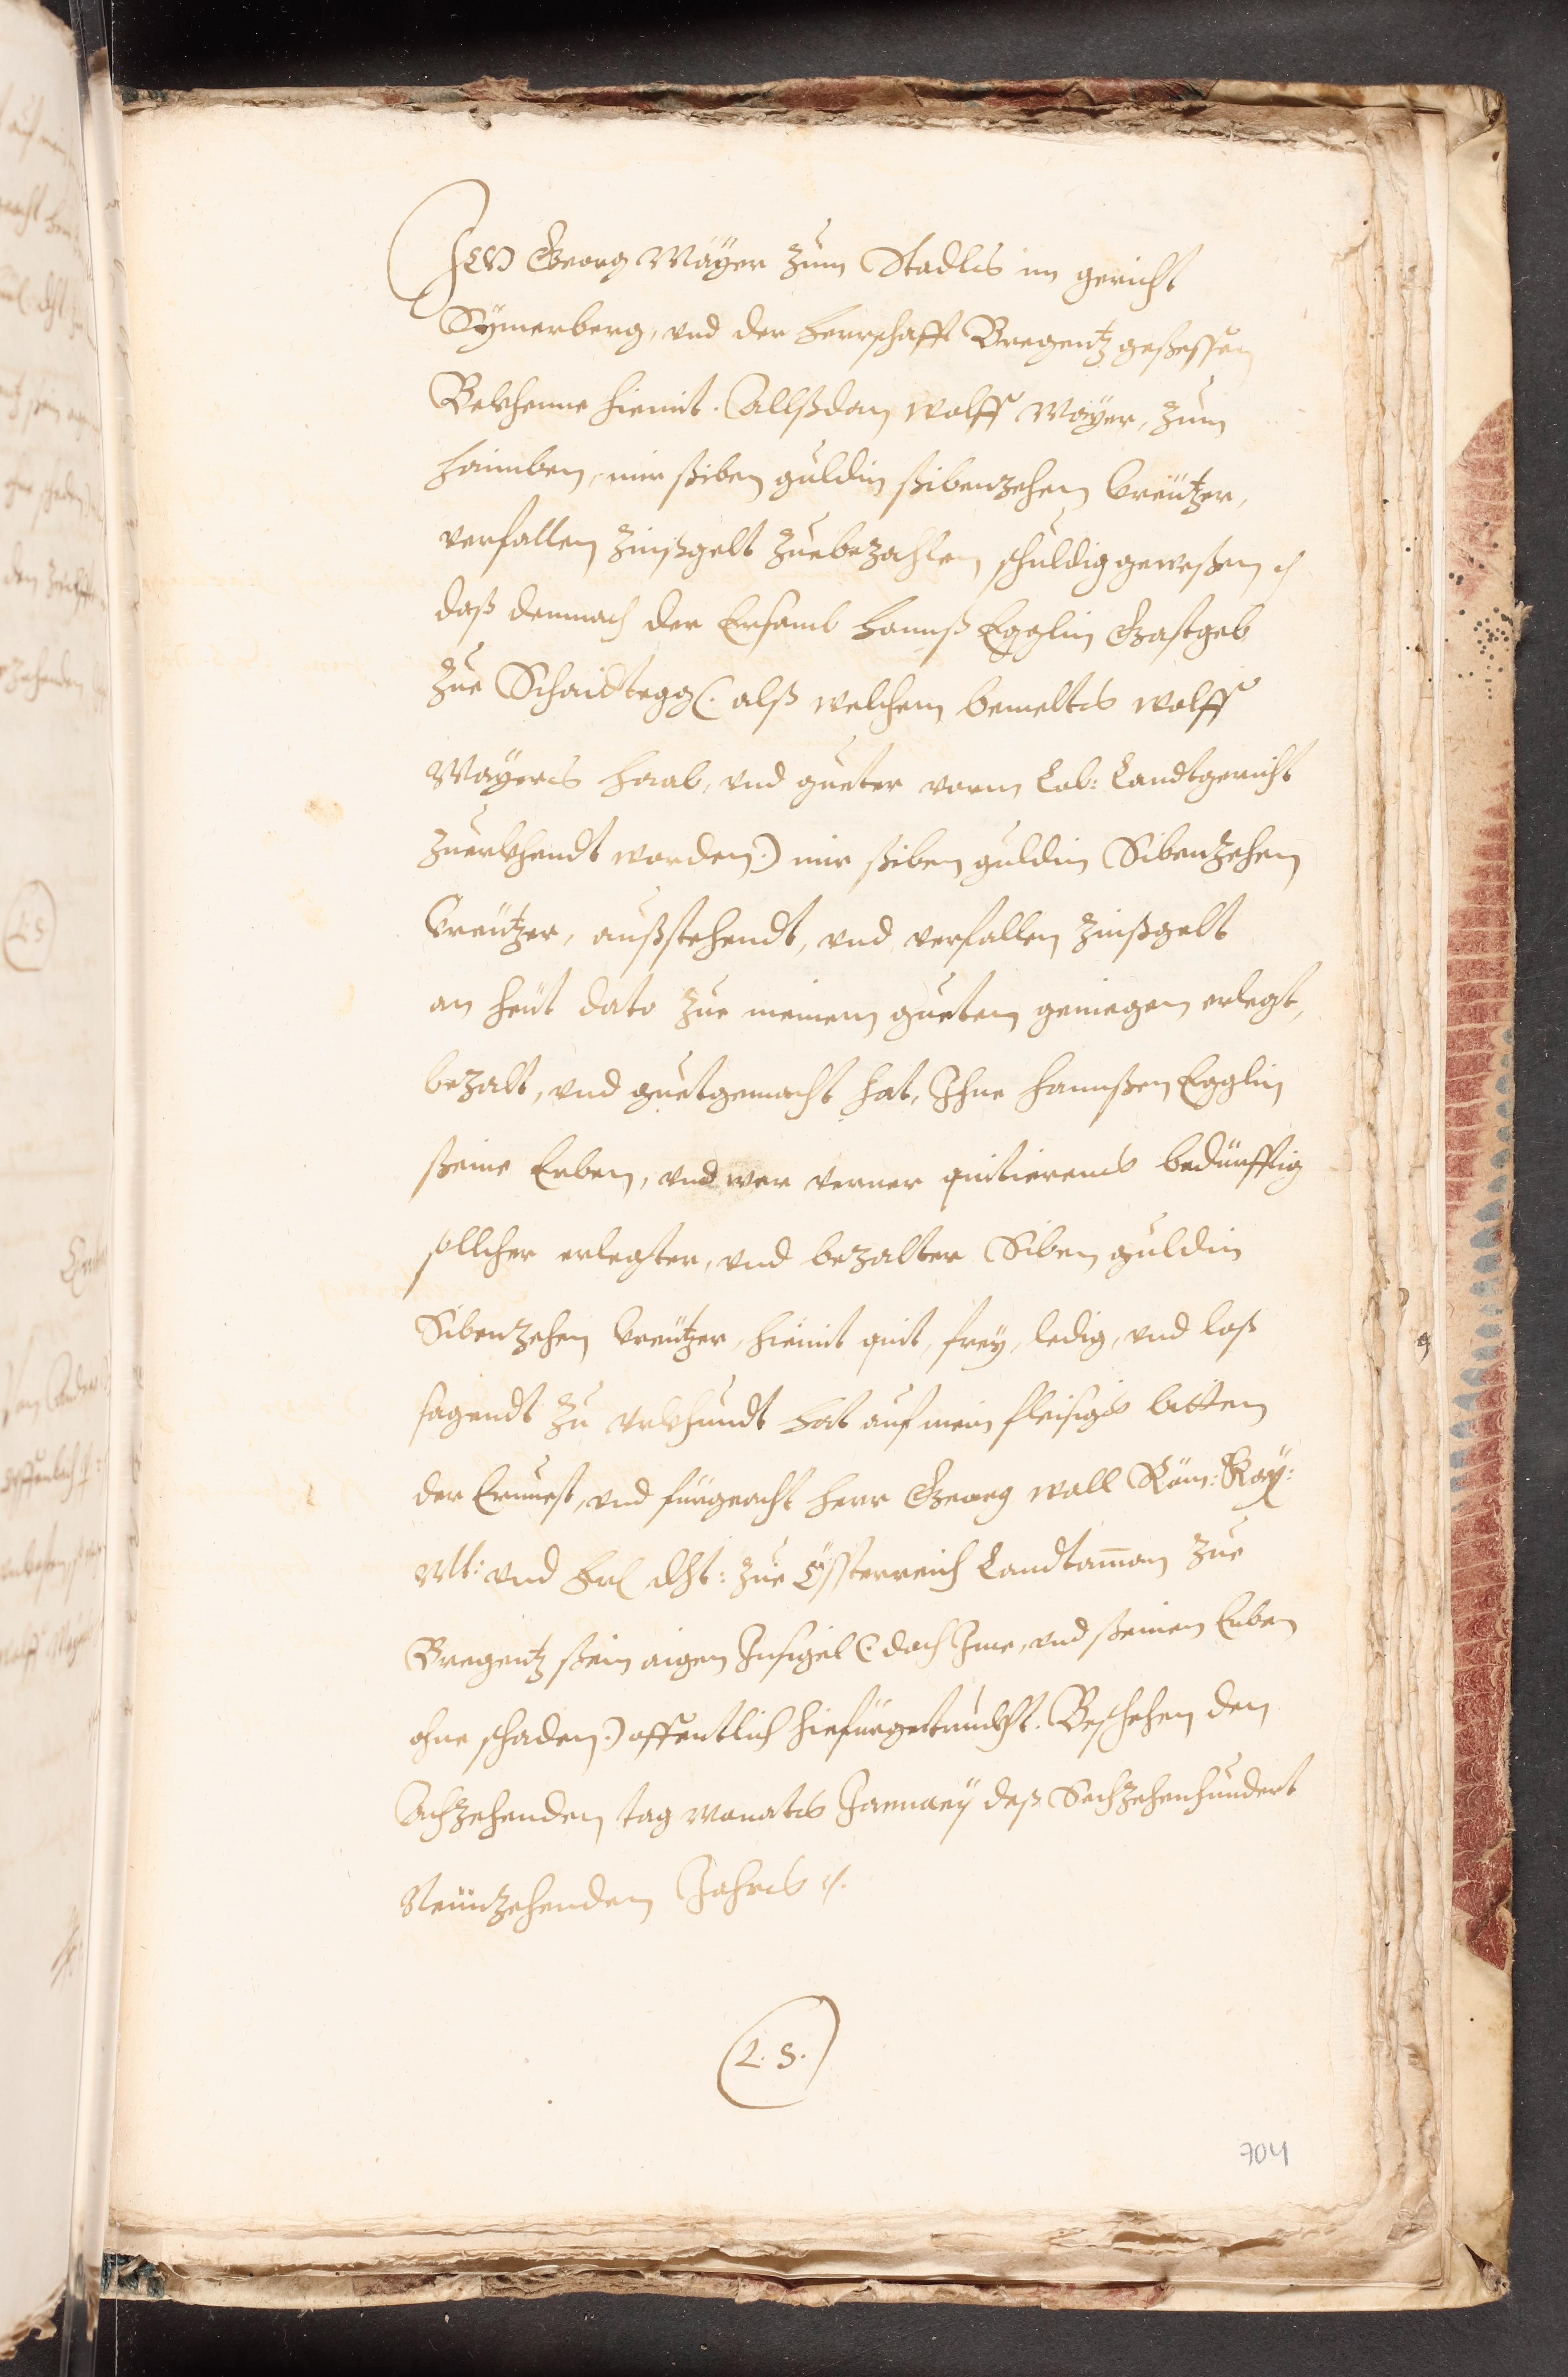 Ich Georg Mayer zum Stadls im gericht
Symerberg, vnd der herrschafft Bregentz geßessen
Bekhenne hiemit. Allßdan wolff Mayer, zum
haimben, mir ßiben guldin ßibenzehen creützer,
verfallen Zinßgelt zuebezahlen schuldig geweßen
daß demnach der Ersamb hannß Egglin Gastgeb
zue Schaidtegg (: alß welchem bemelts wolff
Mayers haab, und gueter vorm Lob: Landtgericht
zuerkhendt worden:) mir ßiben guldin Sibenzehen
Creützer, außstehendt, vnd verfallen Zinßgelt
an heüt dato zue meinem gueten geniegen erlegt,
bezalt, vnd guetgemacht hat, Ihne hannßen Egglin
ßeine Erben, vnd wer verner quitierens bedürfftig
sollcher erlegter, vnd bezalter Siben guldin
Sibenzehen Creützer, hiemit quit, frey, ledig, vnd loß
sagendt zu vrkhundt hat auf mein fleisigs bitten
der Ernuest, vnd fürgeacht herr Georg wall Röm: Kay:
Mt: vnd Frl dht: zue Össterreich Landtaman zue
Bregentz ßein aigen Insigel (: doch Ime, vnd ßeinen Erben
ohne schaden:) offentlich hiefürgetruckht. Beschehen den
Achzehenden tag Monats January deß Sechzehenhundert
Neünzehenden Jahrs
L. S.
704